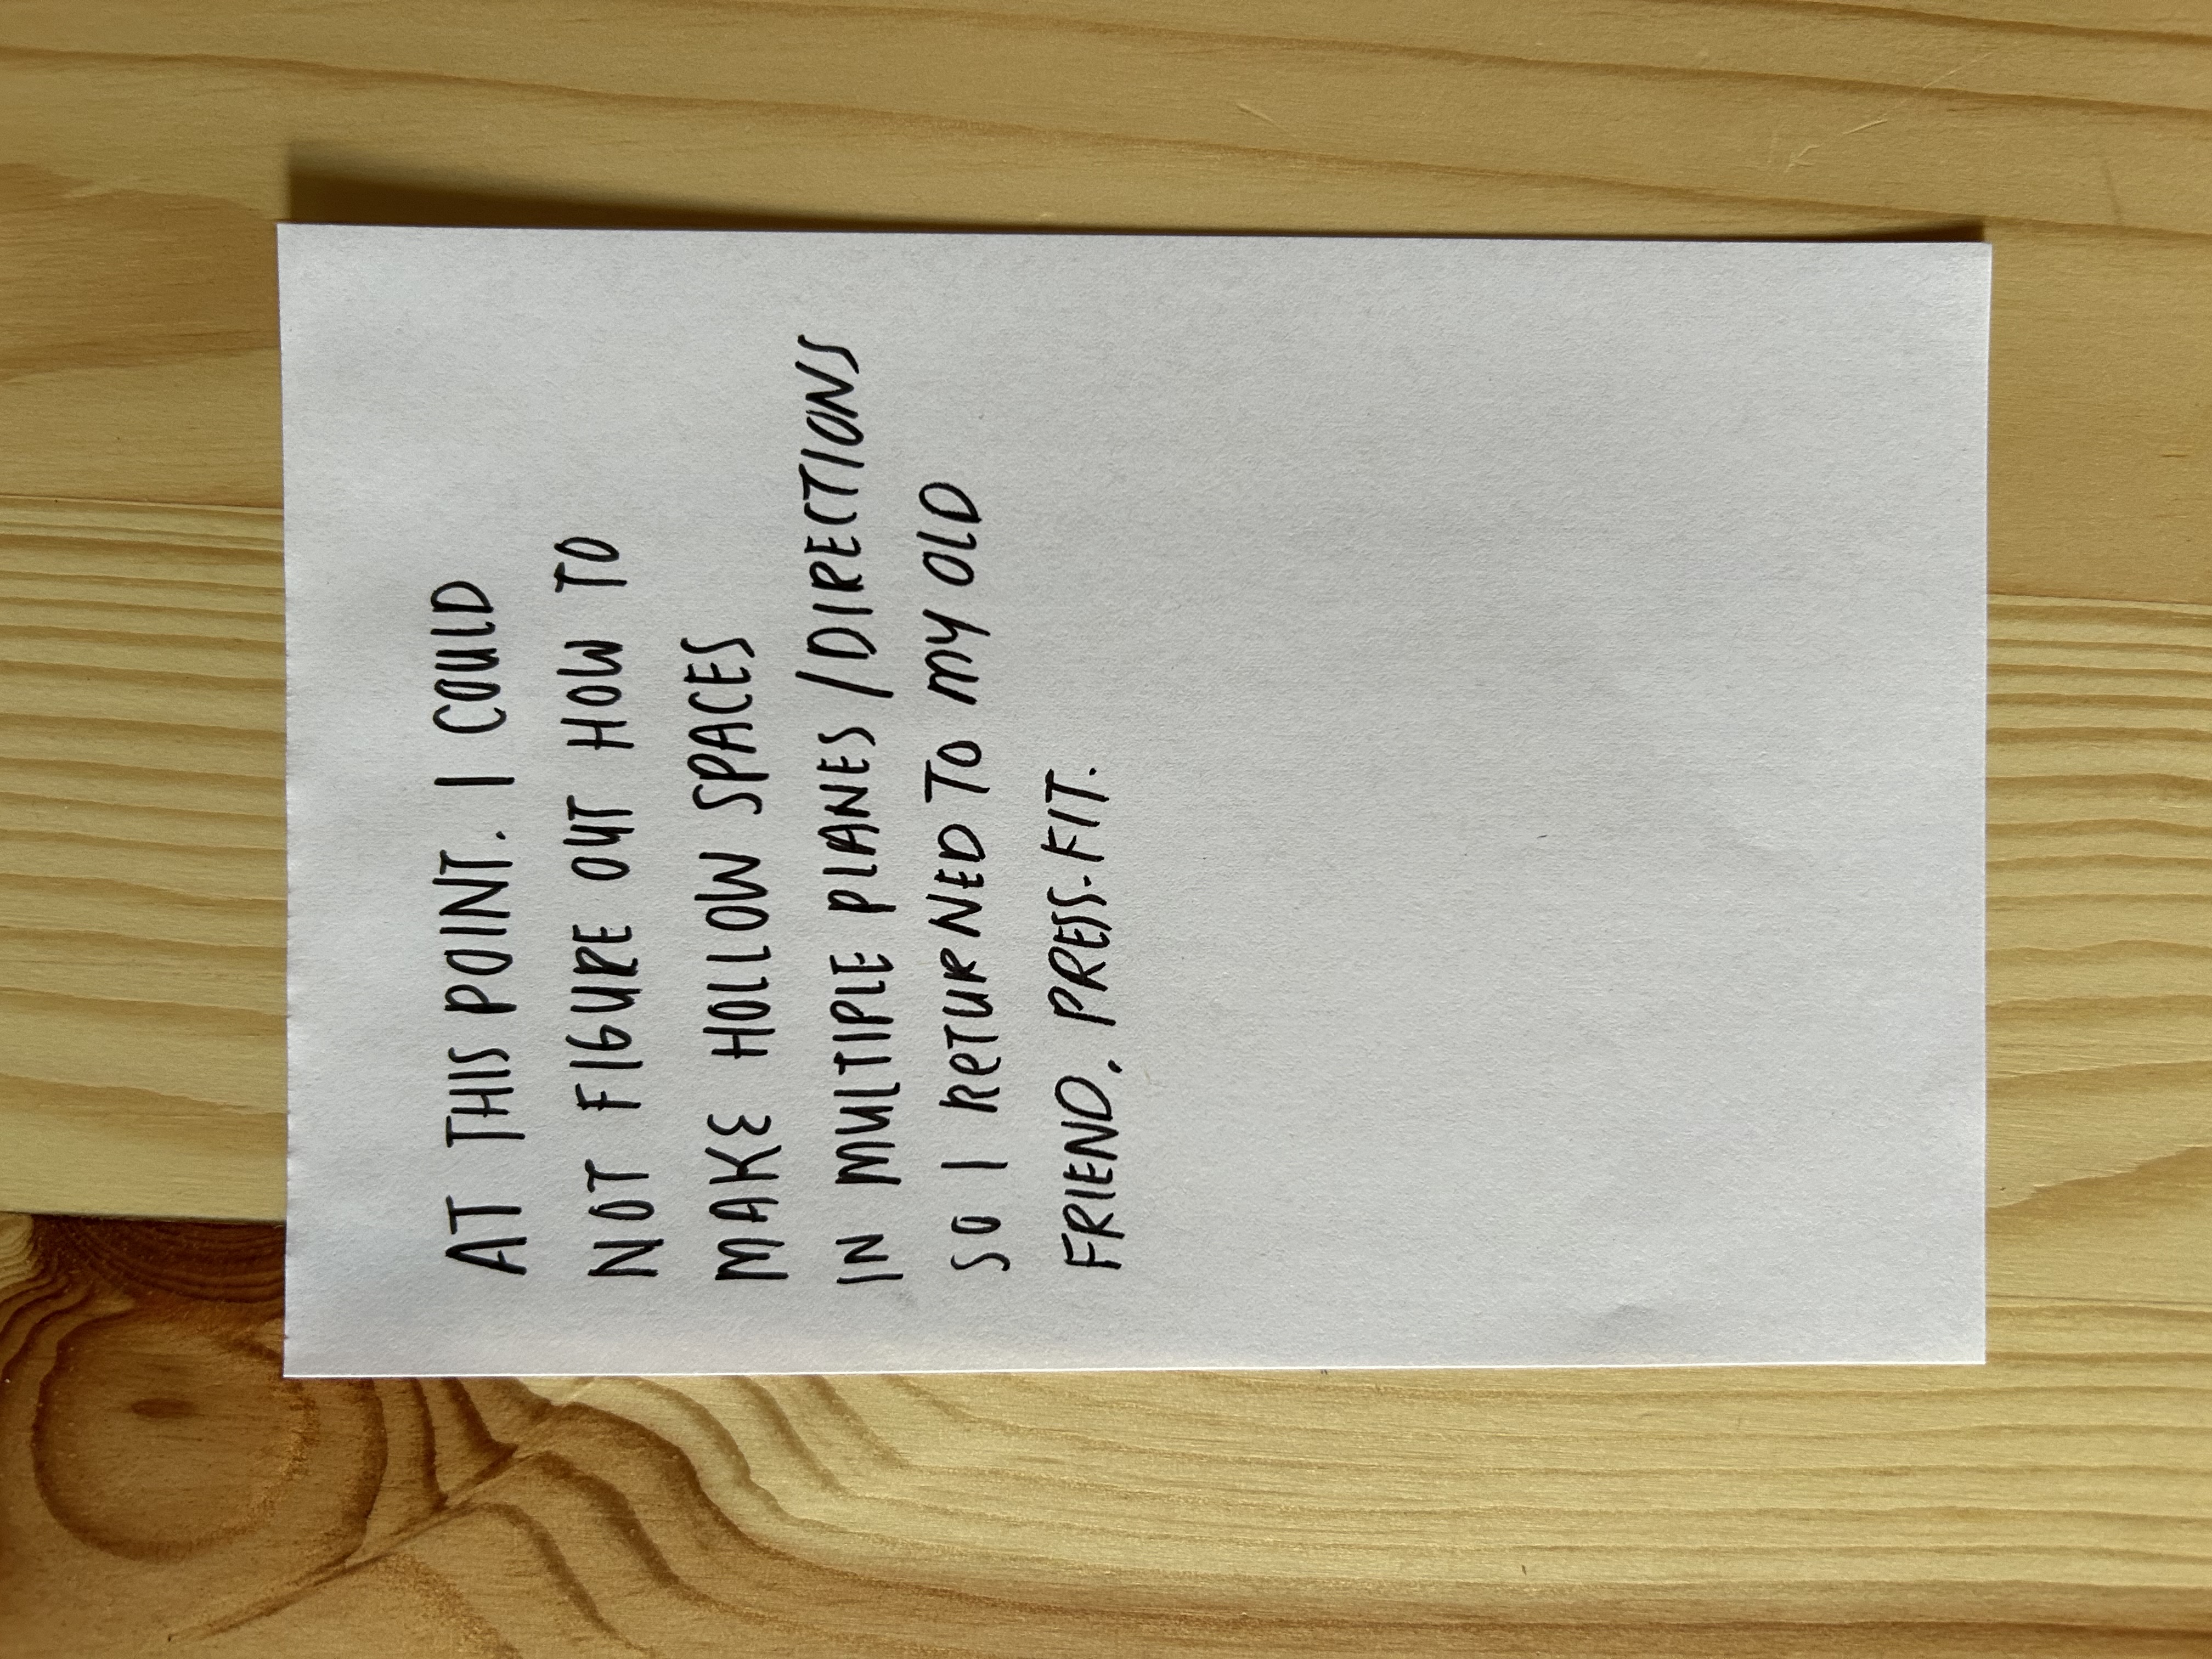 AT THIS POINT. I COULD
NOT FIGURE OUT HOW TO
MAKE HOLLOW SPACES
IN MULTIPLE PLANES /DIRECTIONS
SO I RETURNED TO MY OLD
FRIEND. PRESS-FIT.